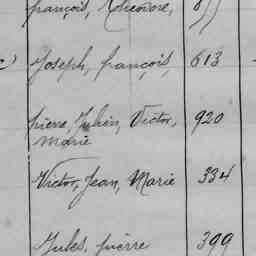 françois, Théodore,
Joseph, françois, 613
pierre, Julien, Victor, 920
marie
Victor, Jean, Marie 334
Jules, pierre 399